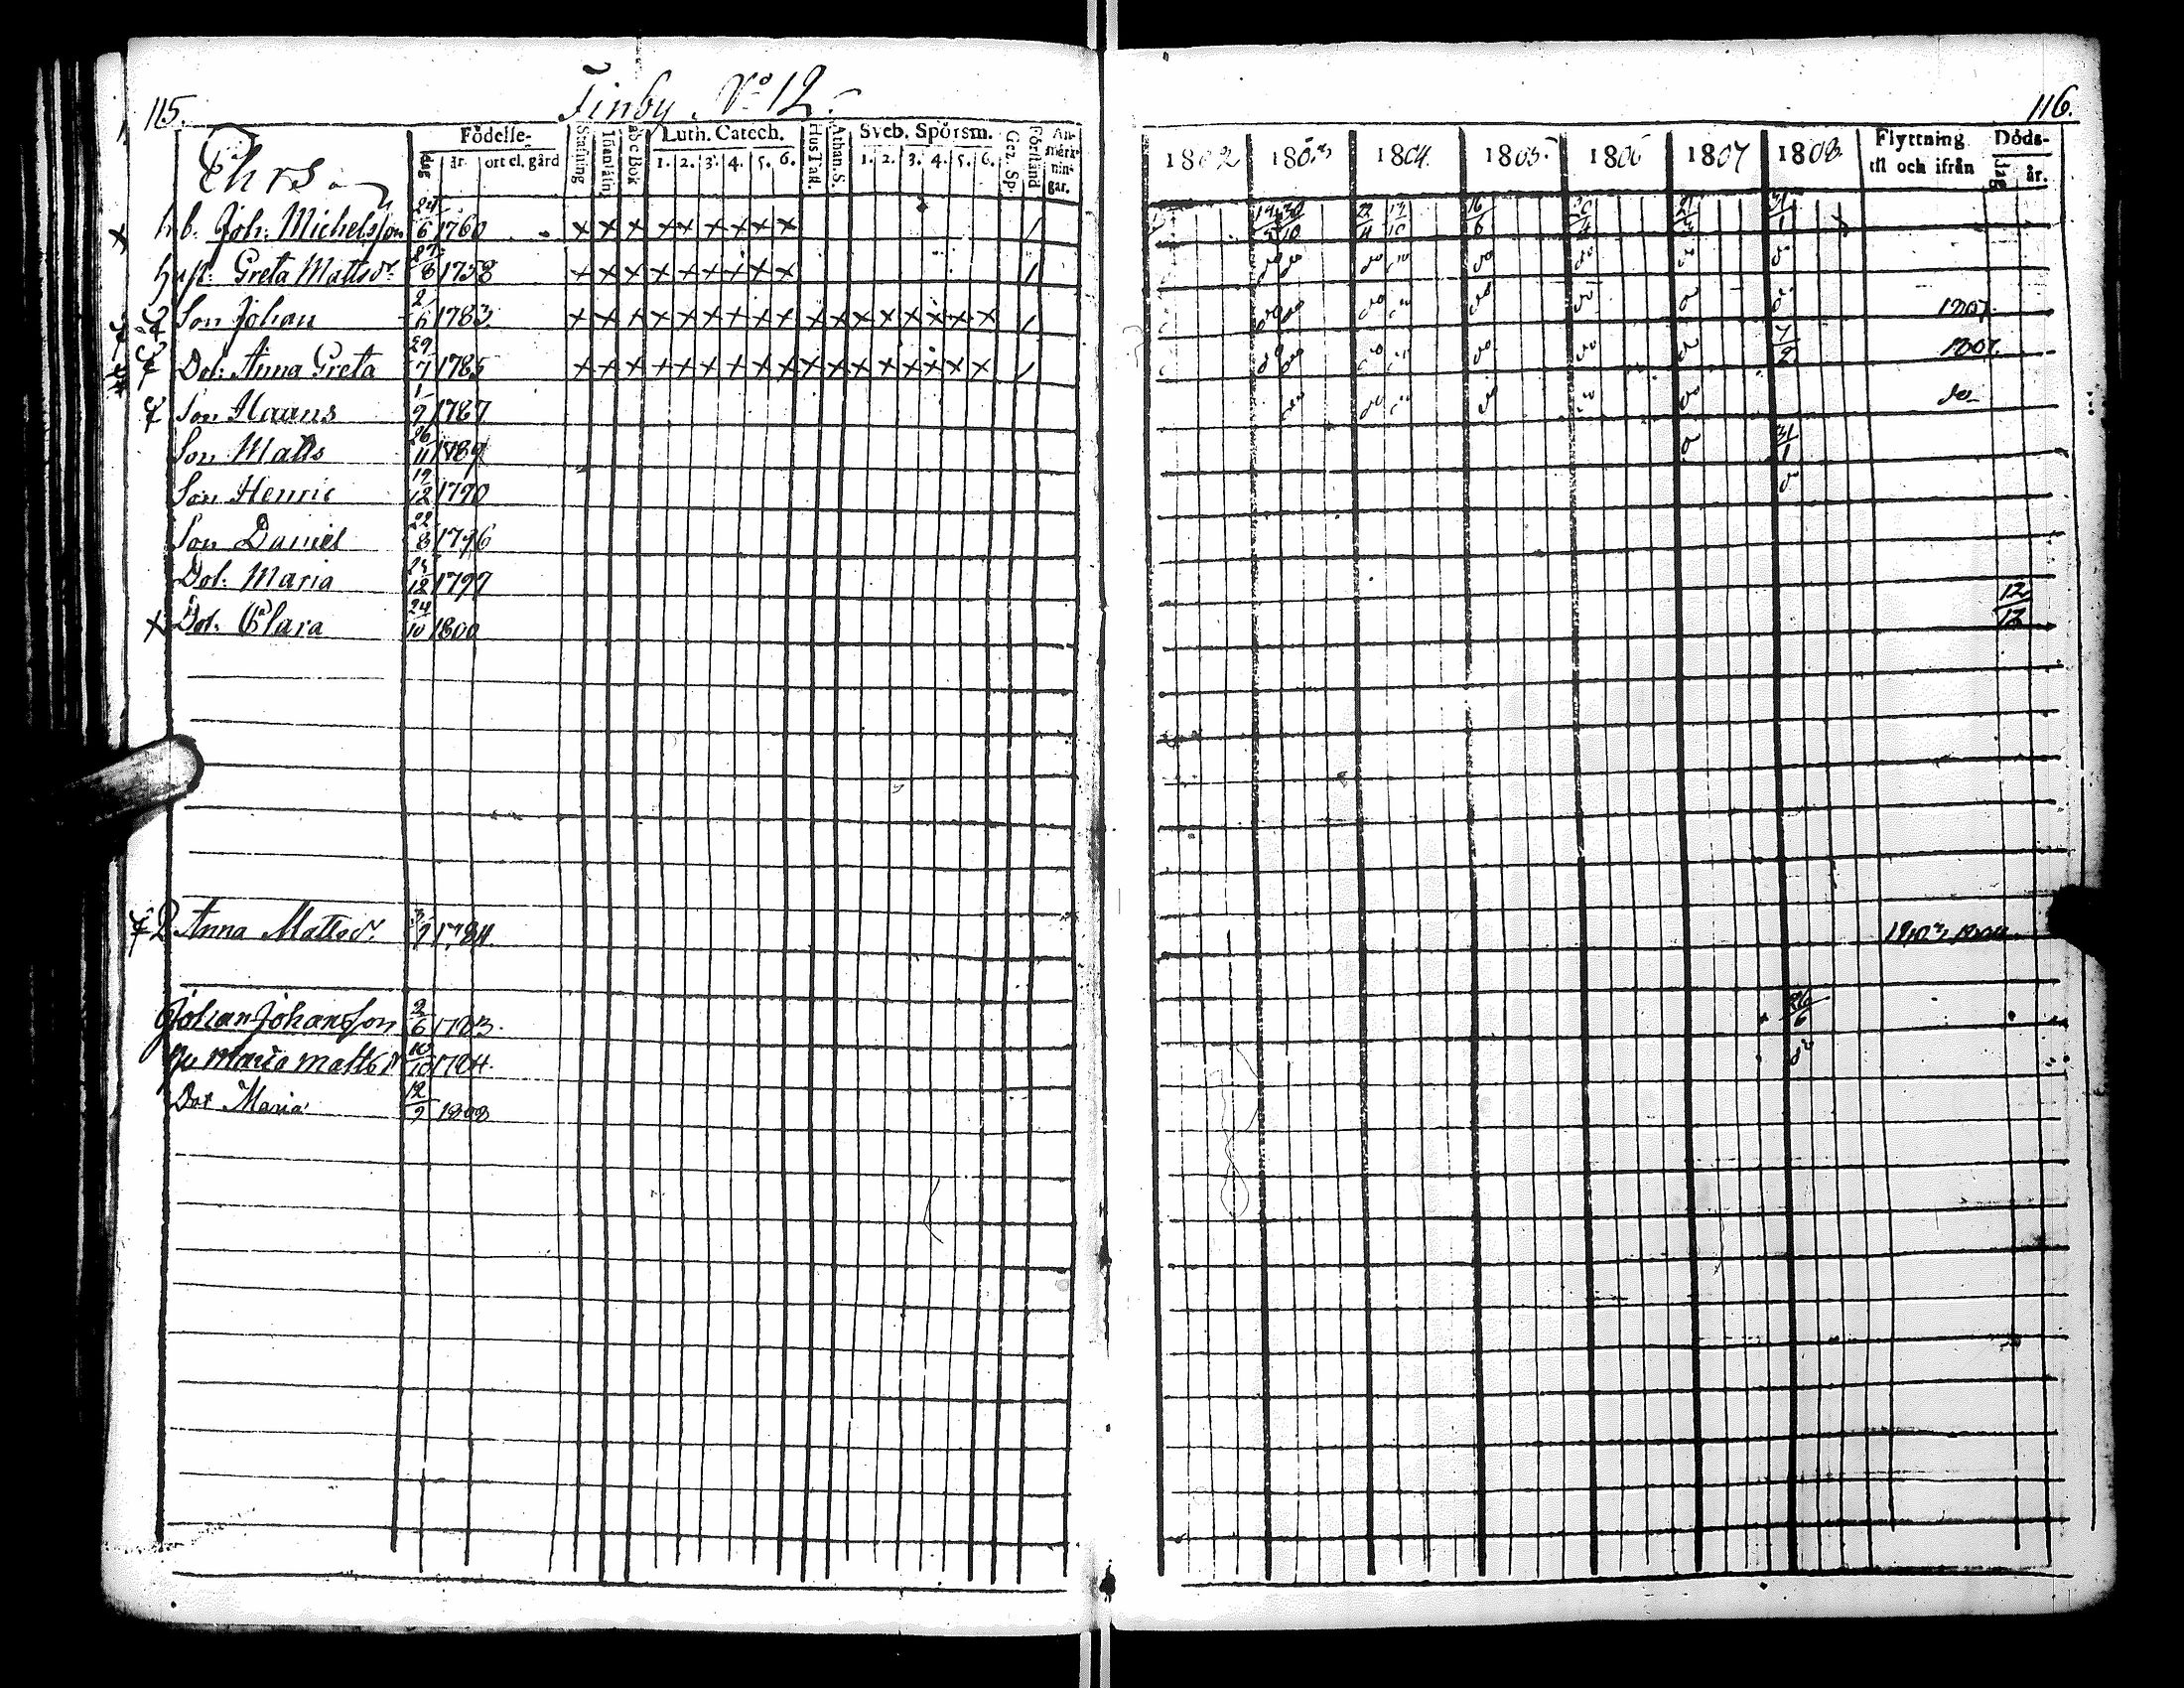 115.
Finby. No 12.
Ehrs.
Födelse-
dag
år.
ort el. gård
Stafning
Innanläsn.
ab c Bok
Luth. Catech.
1. 2. 3. 4. 5. 6.
HusTafl.
Athan. S.
Sveb. Spörsm.
1. 2. 3. 4. 5. 6.
Gez. Sp.
Förstånd
An-
märk-
nin-
gar.
x hb. Joh: Michelsson 24/6 1760 x x x x x x x x x /
hust: Greta Mattsdr. 1758 x x x x x x x x x 1
Son Johan 2/6 1783. x x x x x x x x x x x x x x x x x /
Dot: Anna Greta 29/7 1785 x x x x x x x x x x x x x x x x x /
Son Haans 1/9 1787
Son Matts 26/11 1789
Son Henric 19/12 1790
Son Daniel 22/8 1796
Dot: Maria 12 1797
x Dot: Clara 24/10 1800
Anna Mattsdr. 3/9 1784.
Johan Johansson 2/6 1783.
Maria Mattsdr 10/10 1784.
Dot Maria 12/9 1808
116.
1802 1803 1804. 1805. 1806 1807 1808.
Flyttning
til och ifrån
Döds-
dag
år.
22/4 13/10 16/6 31/1
do do do do do do do do
do do do do do do do do 1807.
do do do do do do do 7/2 1807.
do do do do do do do-
do 31/1
do
12/12
1803 1804
26/6
do